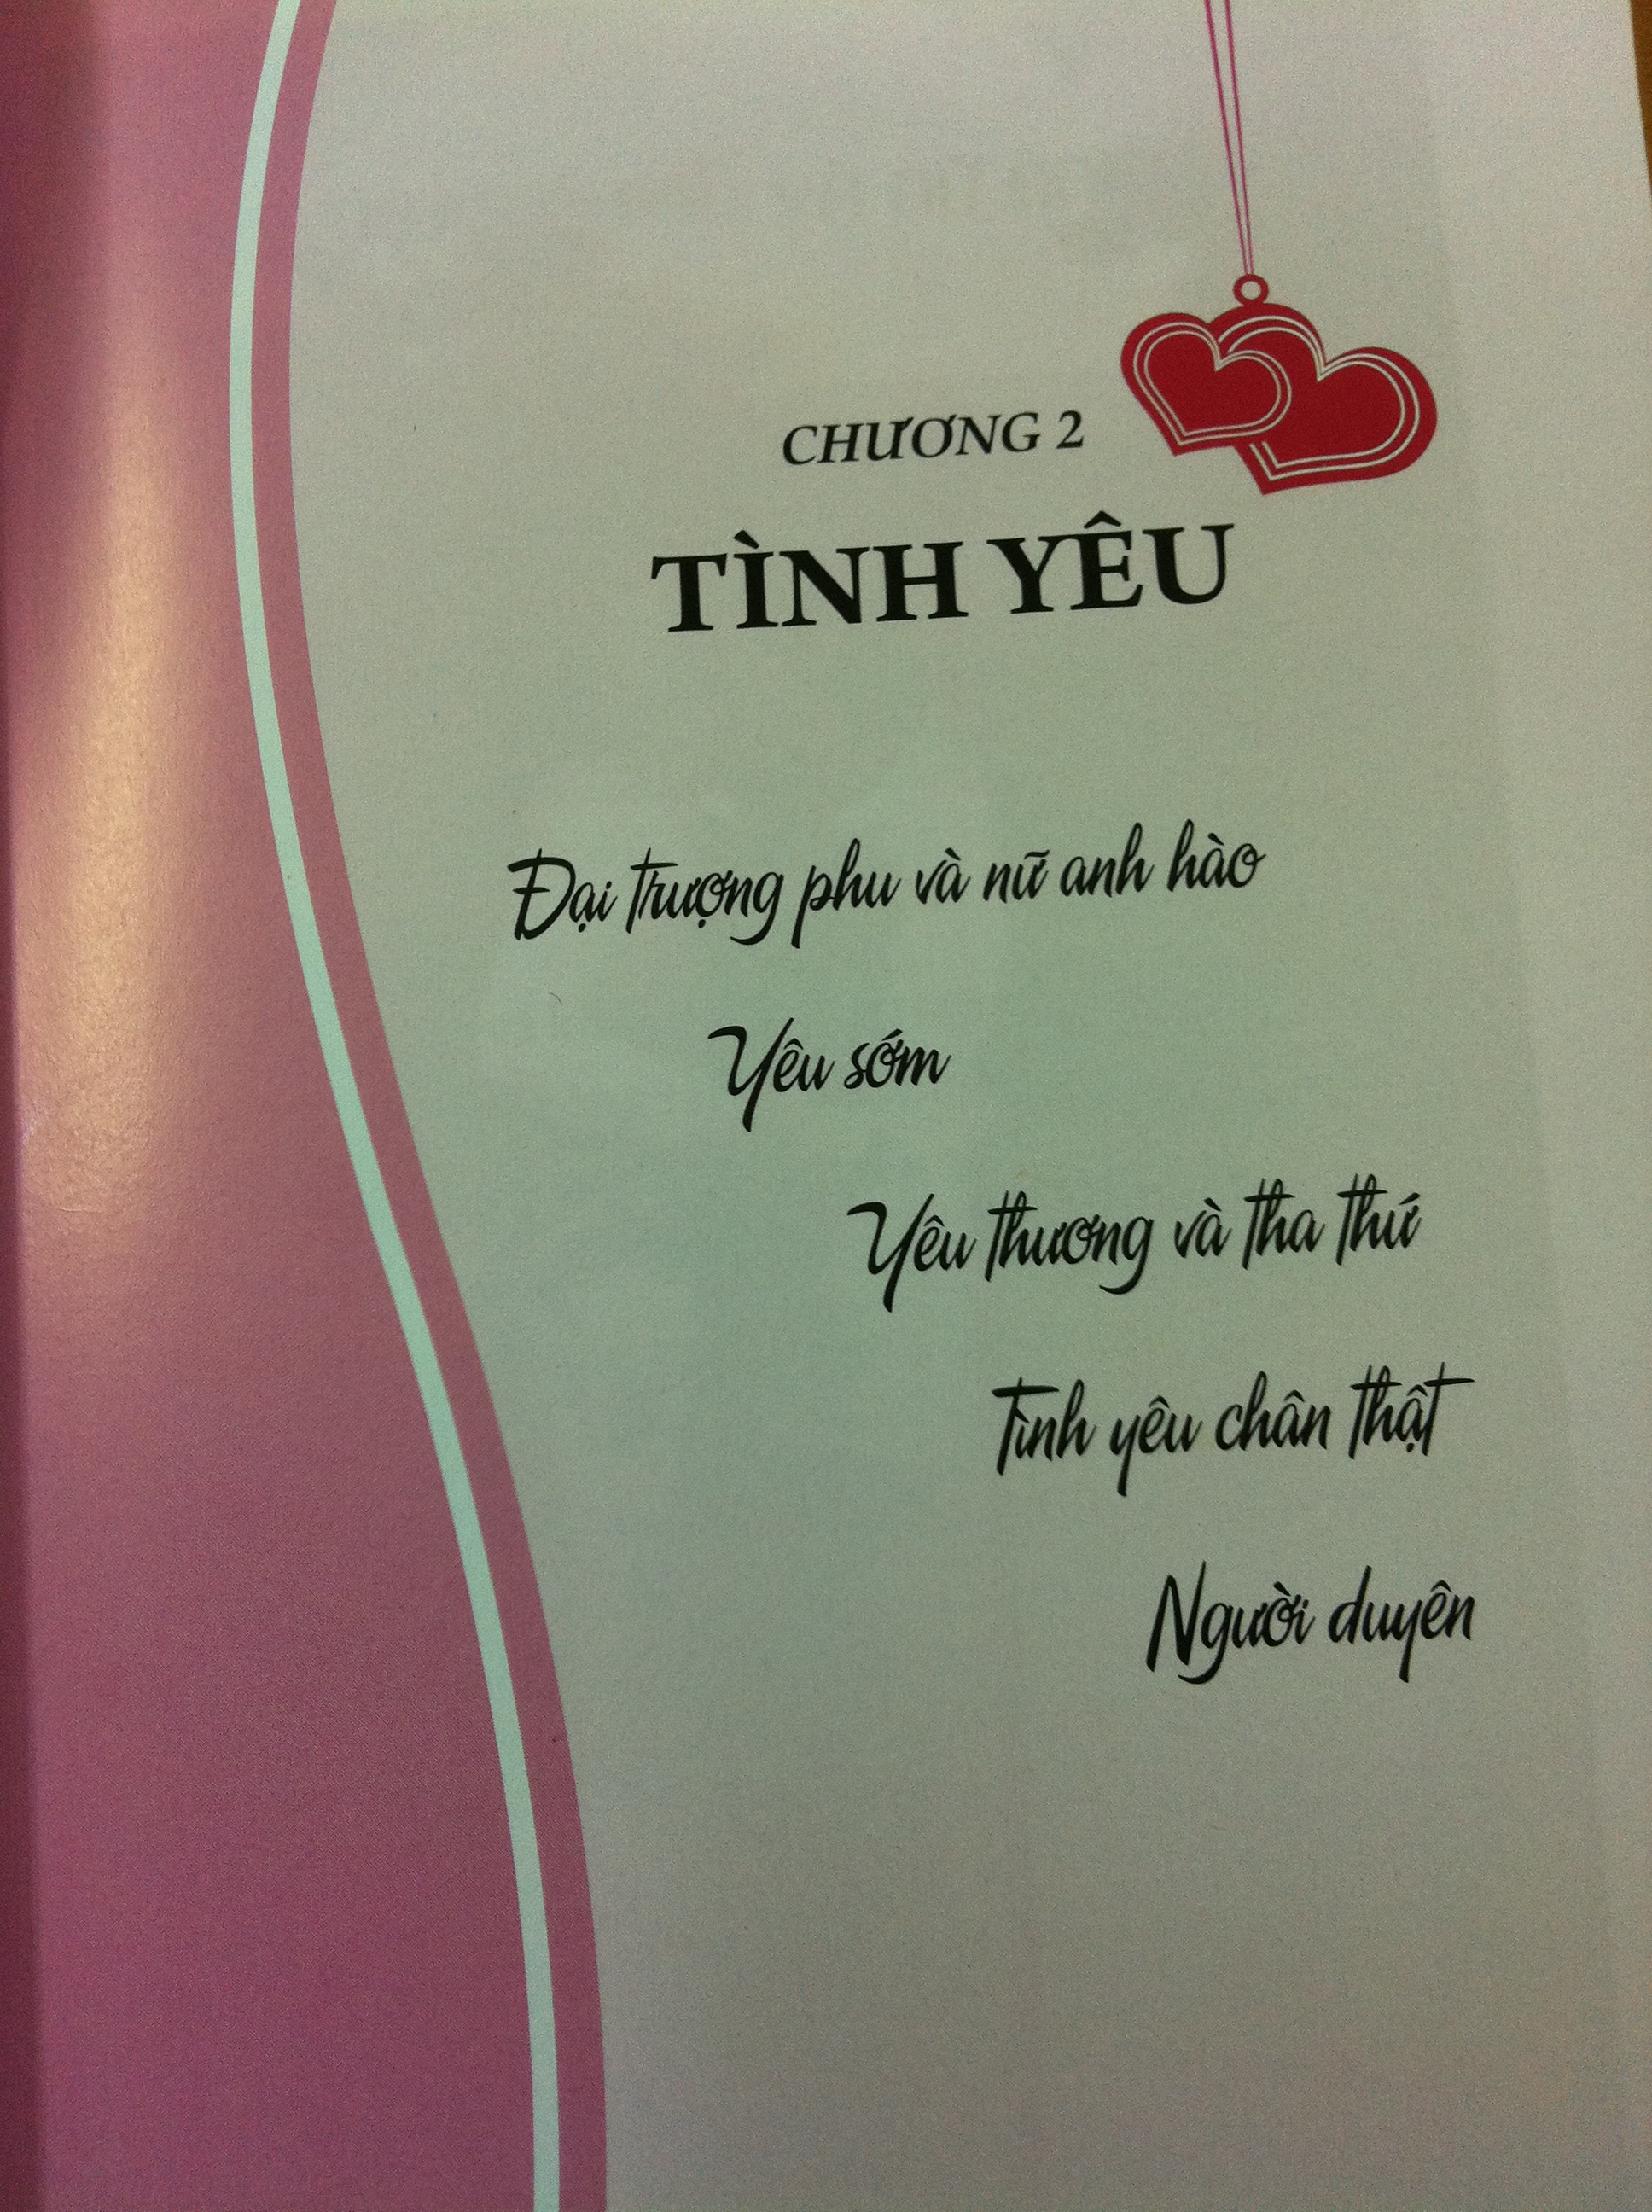 CHƯƠNG 2
TÌNH YÊU
Đại trượng phu và nữ anh hào
Yêu sớm
Yêu thương và tha thứ
Tình yêu chân thật
Người duyên